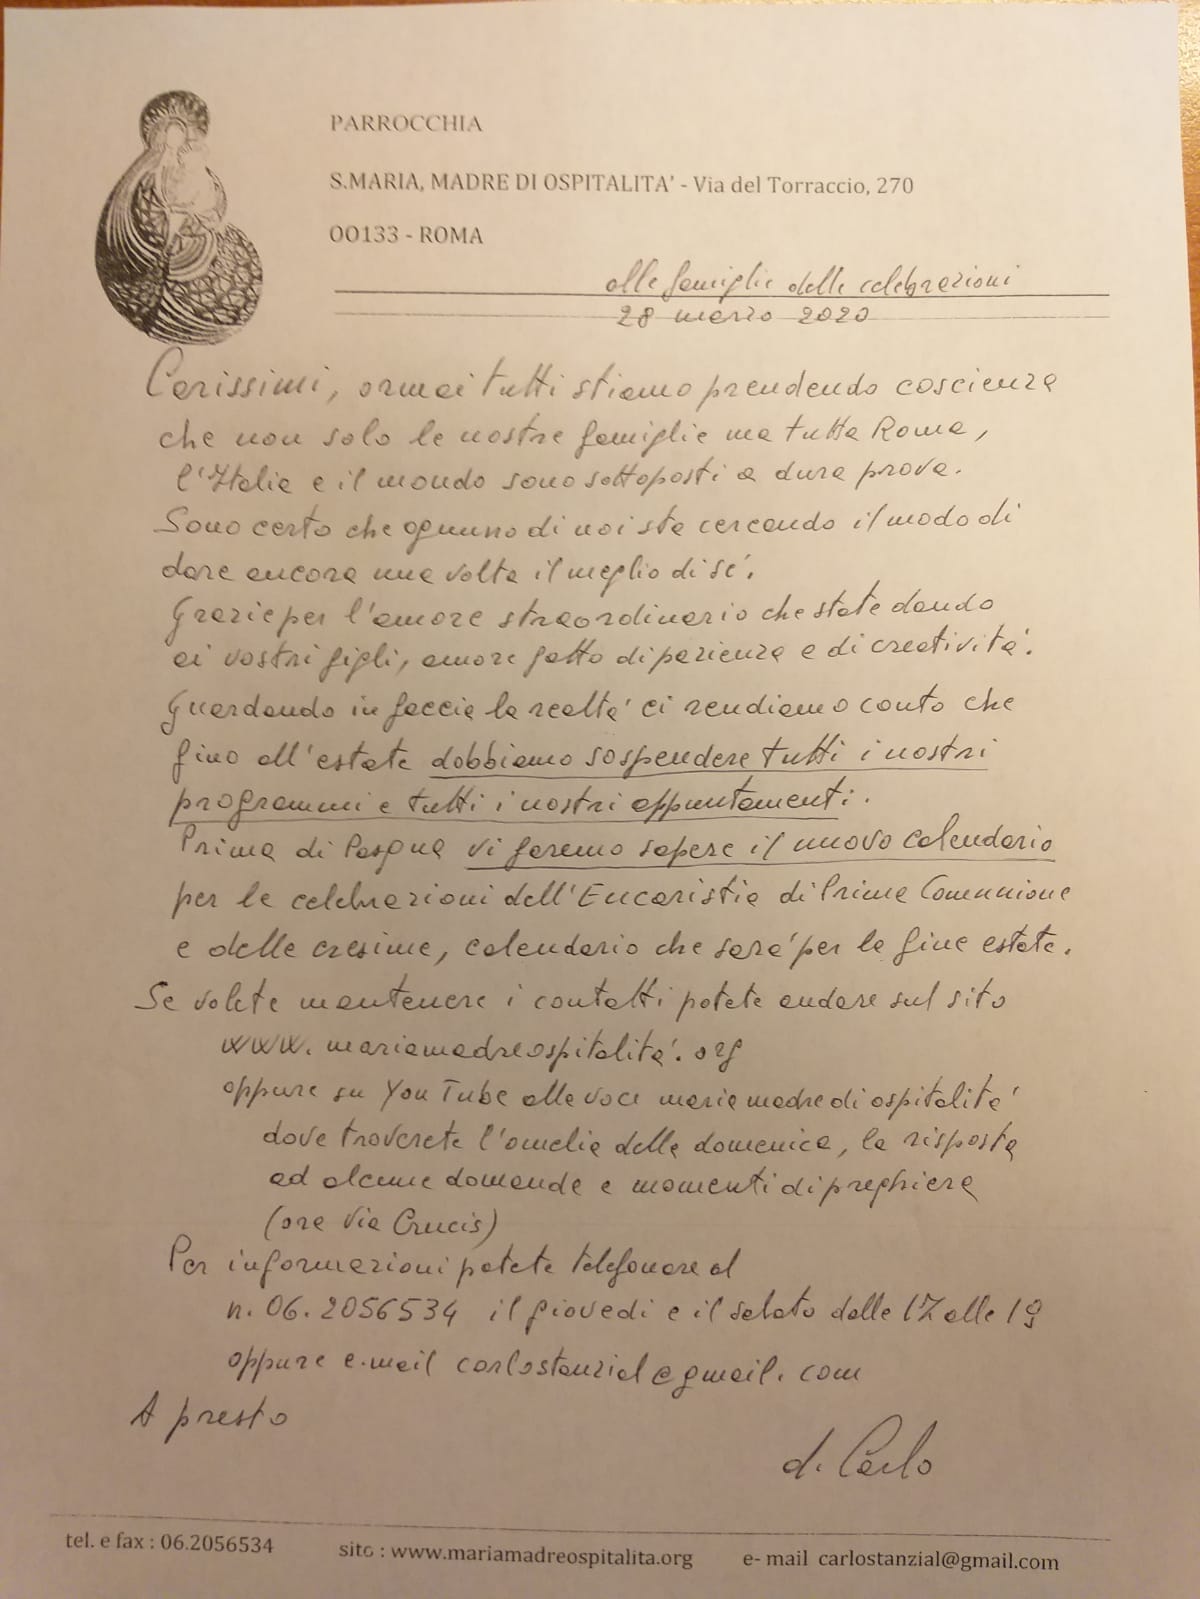 PARROCCHIA
S.MARIA, MADRE DI OSPITALITA' - Via del Torraccio, 270
00133 - ROMA
alle famiglie delle celebrazioni
28 marzo 2020
Carissimi, ormai tutti stiamo prendendo coscienza
che non solo le nostre famiglie ma tutta Roma,
l'Italia e il mondo sono sottoposti a dura prova.
Sono certo che ognuno di noi sta cercando il modo di
dare ancora una volta il meglio di sé.
Grazie per l'amore straordinario che state dando
ai vostri figli, amore fatto di pazienza e di creatività.
Guardando in faccia la realtà ci rendiamo conto che
fino all'estate dobbiamo sospendere tutti i nostri
programmi e tutti i nostri appuntamenti.
Prima di Pasqua vi faremo sapere il nuovo calendario
per le celebrazioni dell'Eucaristia di Prima Comunione
e delle cresime, calendario che sarà per la fine estate.
Se volete mantenere i contatti potete andare sul sito
www.mariamadreospitalità.org
oppure su YouTube alla voce maria madre di ospitalità
dove troverete l'omelia della domenica, la risposta
ad alcune domande e momenti di preghiera
(ora Via Crucis)
Per informazioni potete telefonare al
n. 06.2056534 il giovedì e il sabato dalle 17 alle 19
oppure e.mail carlostanzial@gmail.com
A presto
d. Carlo
tel. e fax : 06.2056534 sito : www.mariamadreospitalita.org e- mail carlostanzial@gmail.com